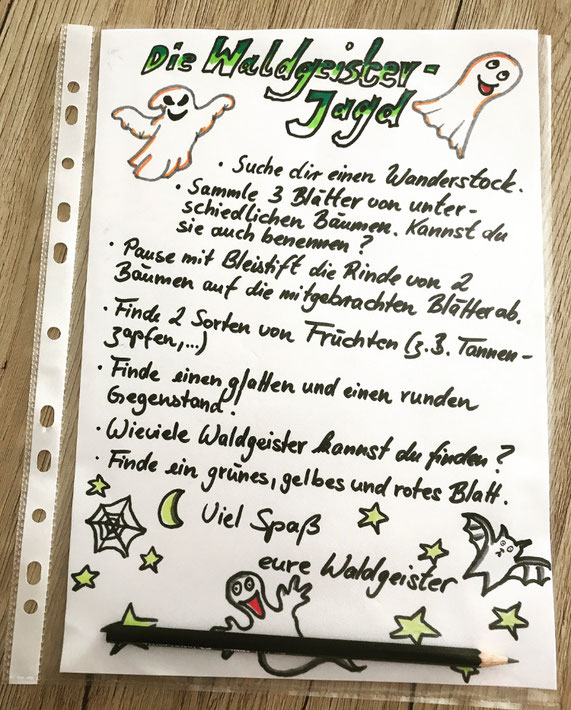 Die Waldgeister-
Jagd
• Suche dir einen Wanderstock.
• Sammle 3 Blätter von unter-
schiedlichen Bäumen. Kannst du
sie auch benennen?
• Pause mit Bleistift die Rinde von 2
Bäumen auf die mitgebrachten Blätter ab.
• Finde 2 Sorten von Früchten (z.B. Tannen-
zapfen,...)
• Finde einen glatten und einen runden
Gegenstand.
• Wieviele Waldgeister kannst du finden?
• Finde ein grünes, gelbes und rotes Blatt.
Viel Spaß
eure Waldgeister